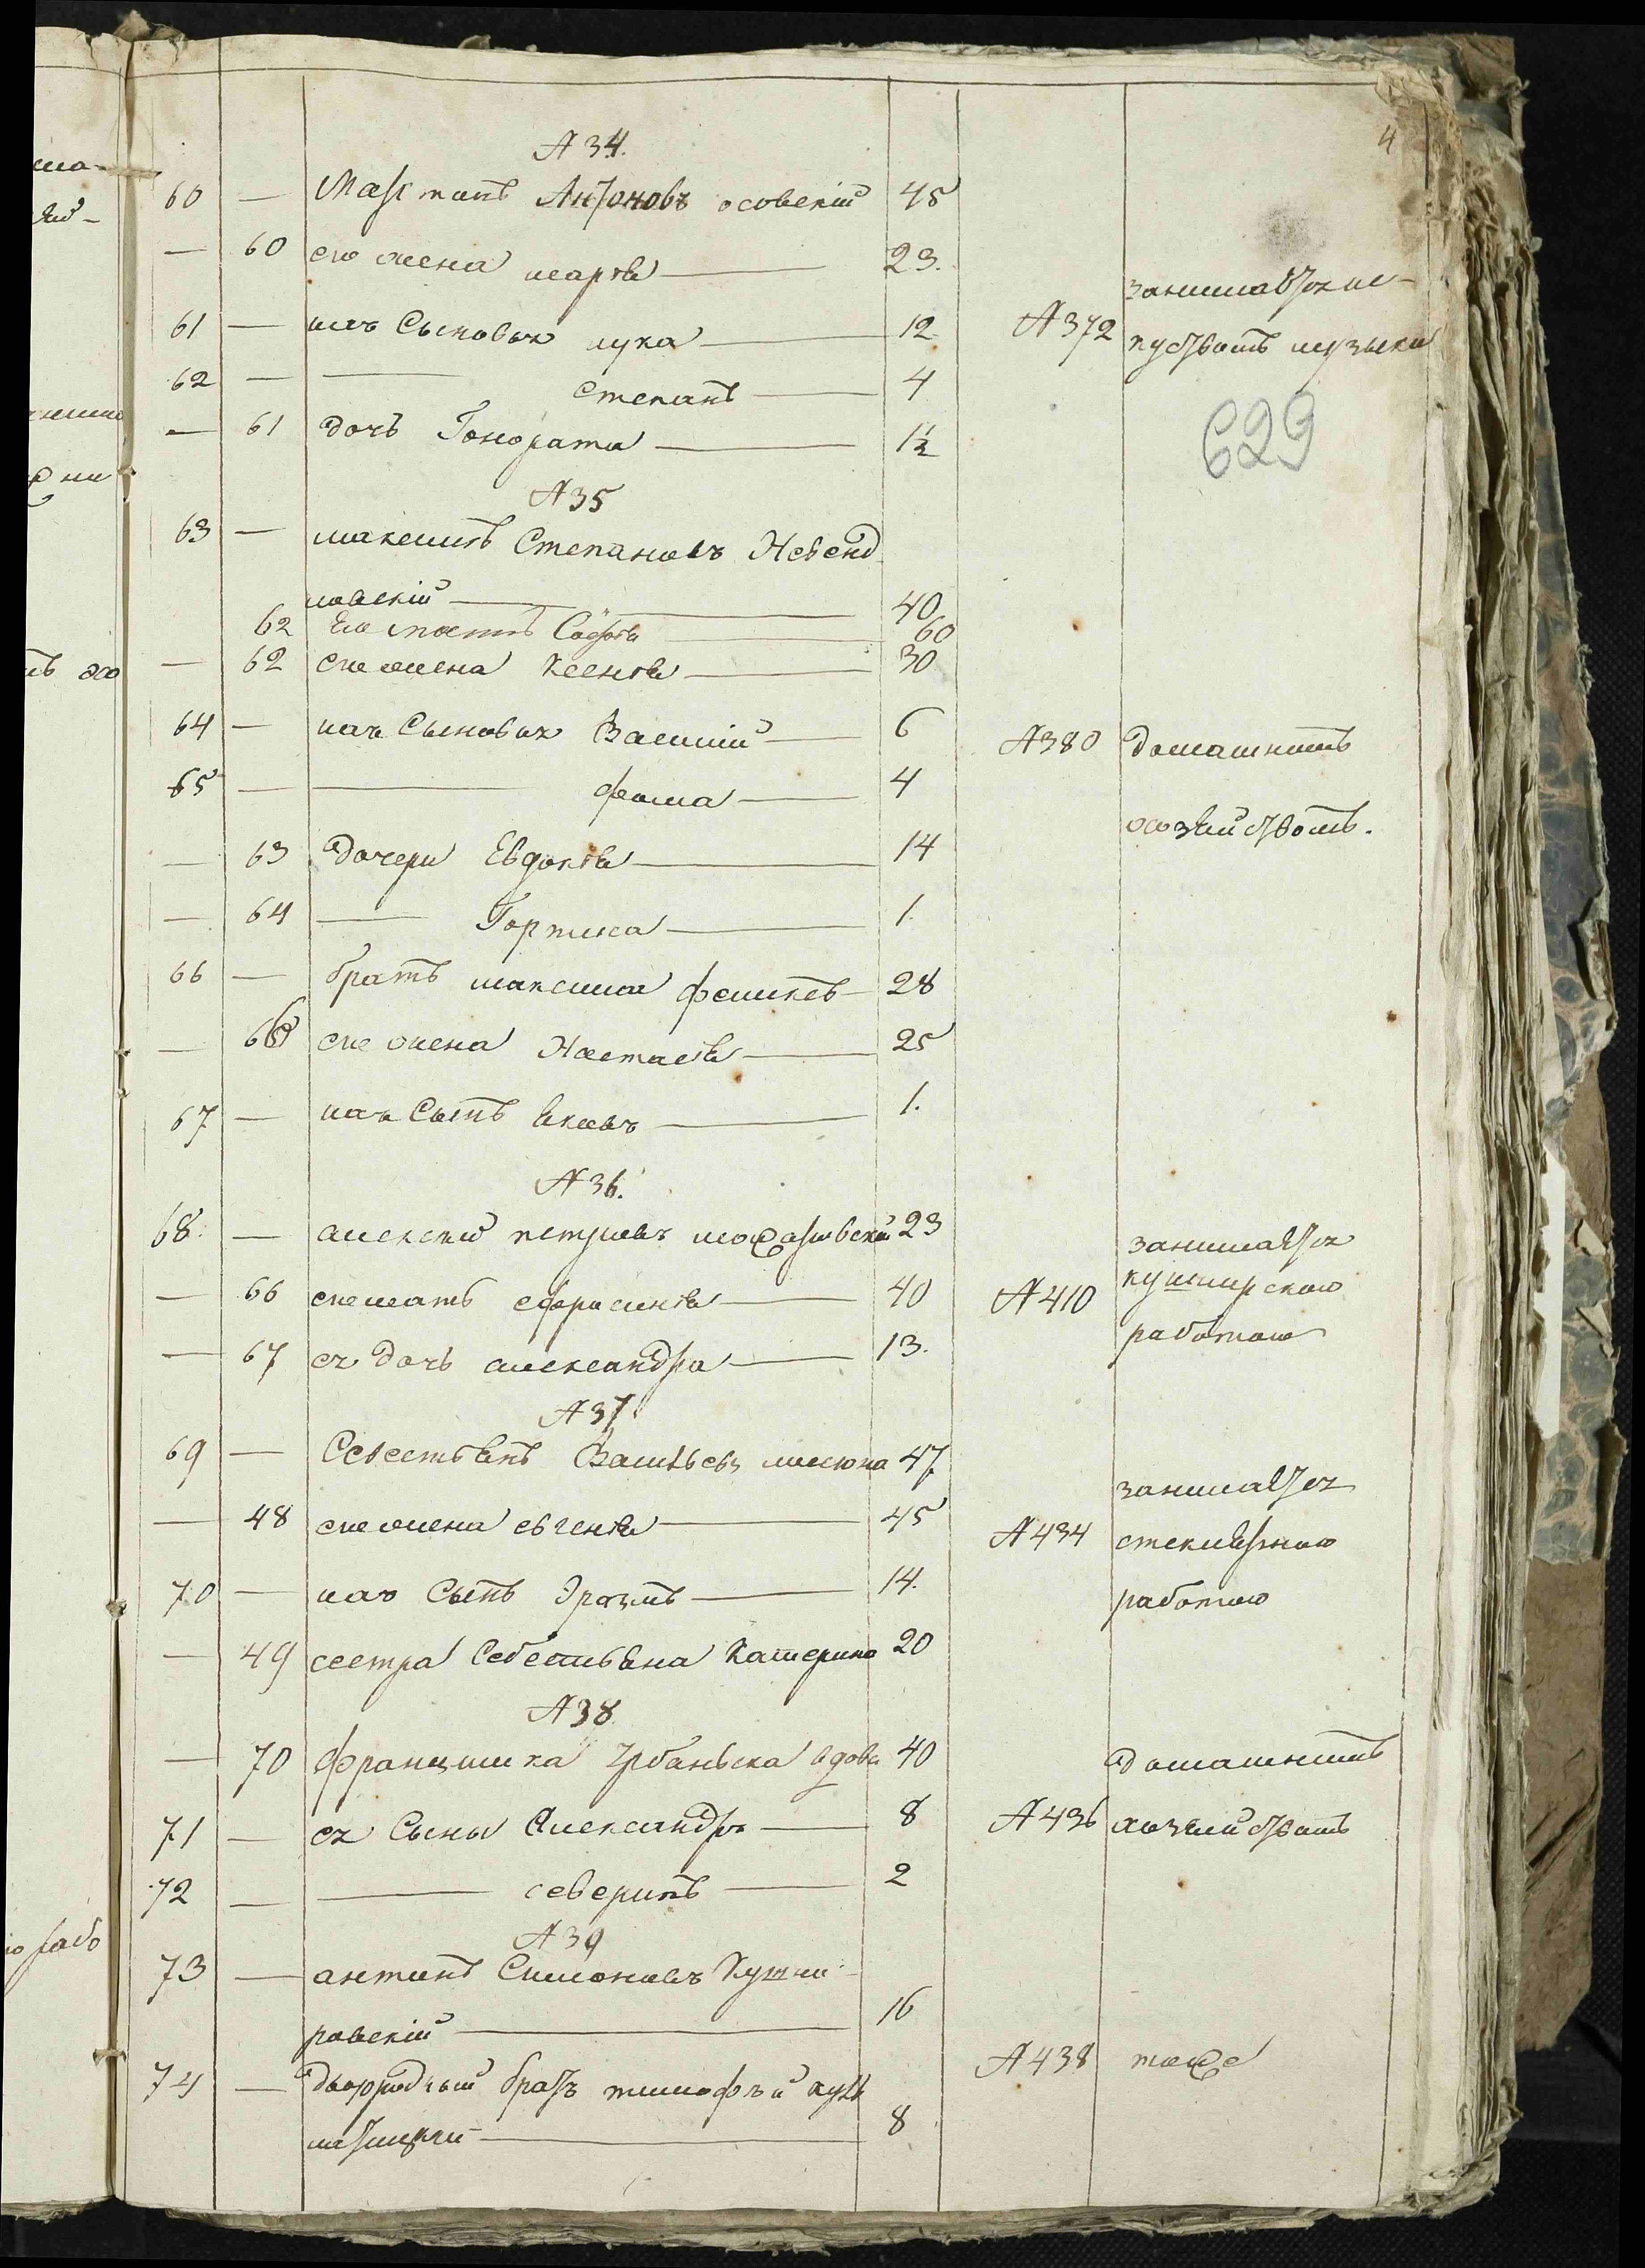 4
№ 34.
60 — Антоновъ осовскій 45
— 60 его жена марѳа — 23.
61 — ихъ Сыновья лука — 12
62 — — степанъ — 4
— 61 дочь Гонората — 1½
№ 372 занимается ис-
куствомъ музыки
629
№ 35
63 — максимъ Степановъ
40
62 Его мать Софія — 60
— 62 его жена Ксенія — 30
64 — ихъ Сыновья Василій — 6
65 — — фома — 4
— 63 дочери Евдокія — 14
— 64 — — 1.
66 — братъ максима феликсъ — 28
— 65 его жена Настасія — 25
67 — ихъ Сынъ Яковъ — 1.
№ 380 домашнимъ
хозяйствомъ.
№ 36.
68. — алексей петровъ 23
— 66 его мать ефросинія — 40
— 67 ея дочь александра — 13.
№ 410 занимается
кушнирскою
работою
№ 37
69 — Севестіянъ Васильевъ 47
— 48 его жена евгенія — 45
70 — ихъ Сынъ Эразмъ — 14.
— 49 сестра Севестіяна Катерина 20
№ 434 занимается
стекляр­ною
работою
№ 38
— 70 Францишка Урбанска вдова 40
71 — ея Сыны Александръ — 8
72 — — северинъ — 2
№ 436 домашнимъ
хозяйствомъ
№ 39
73 — антонъ Симоновъ Кушни-
ровскій — 16
74 — двоюродный братъ тимофей
8
№ 438 тоже